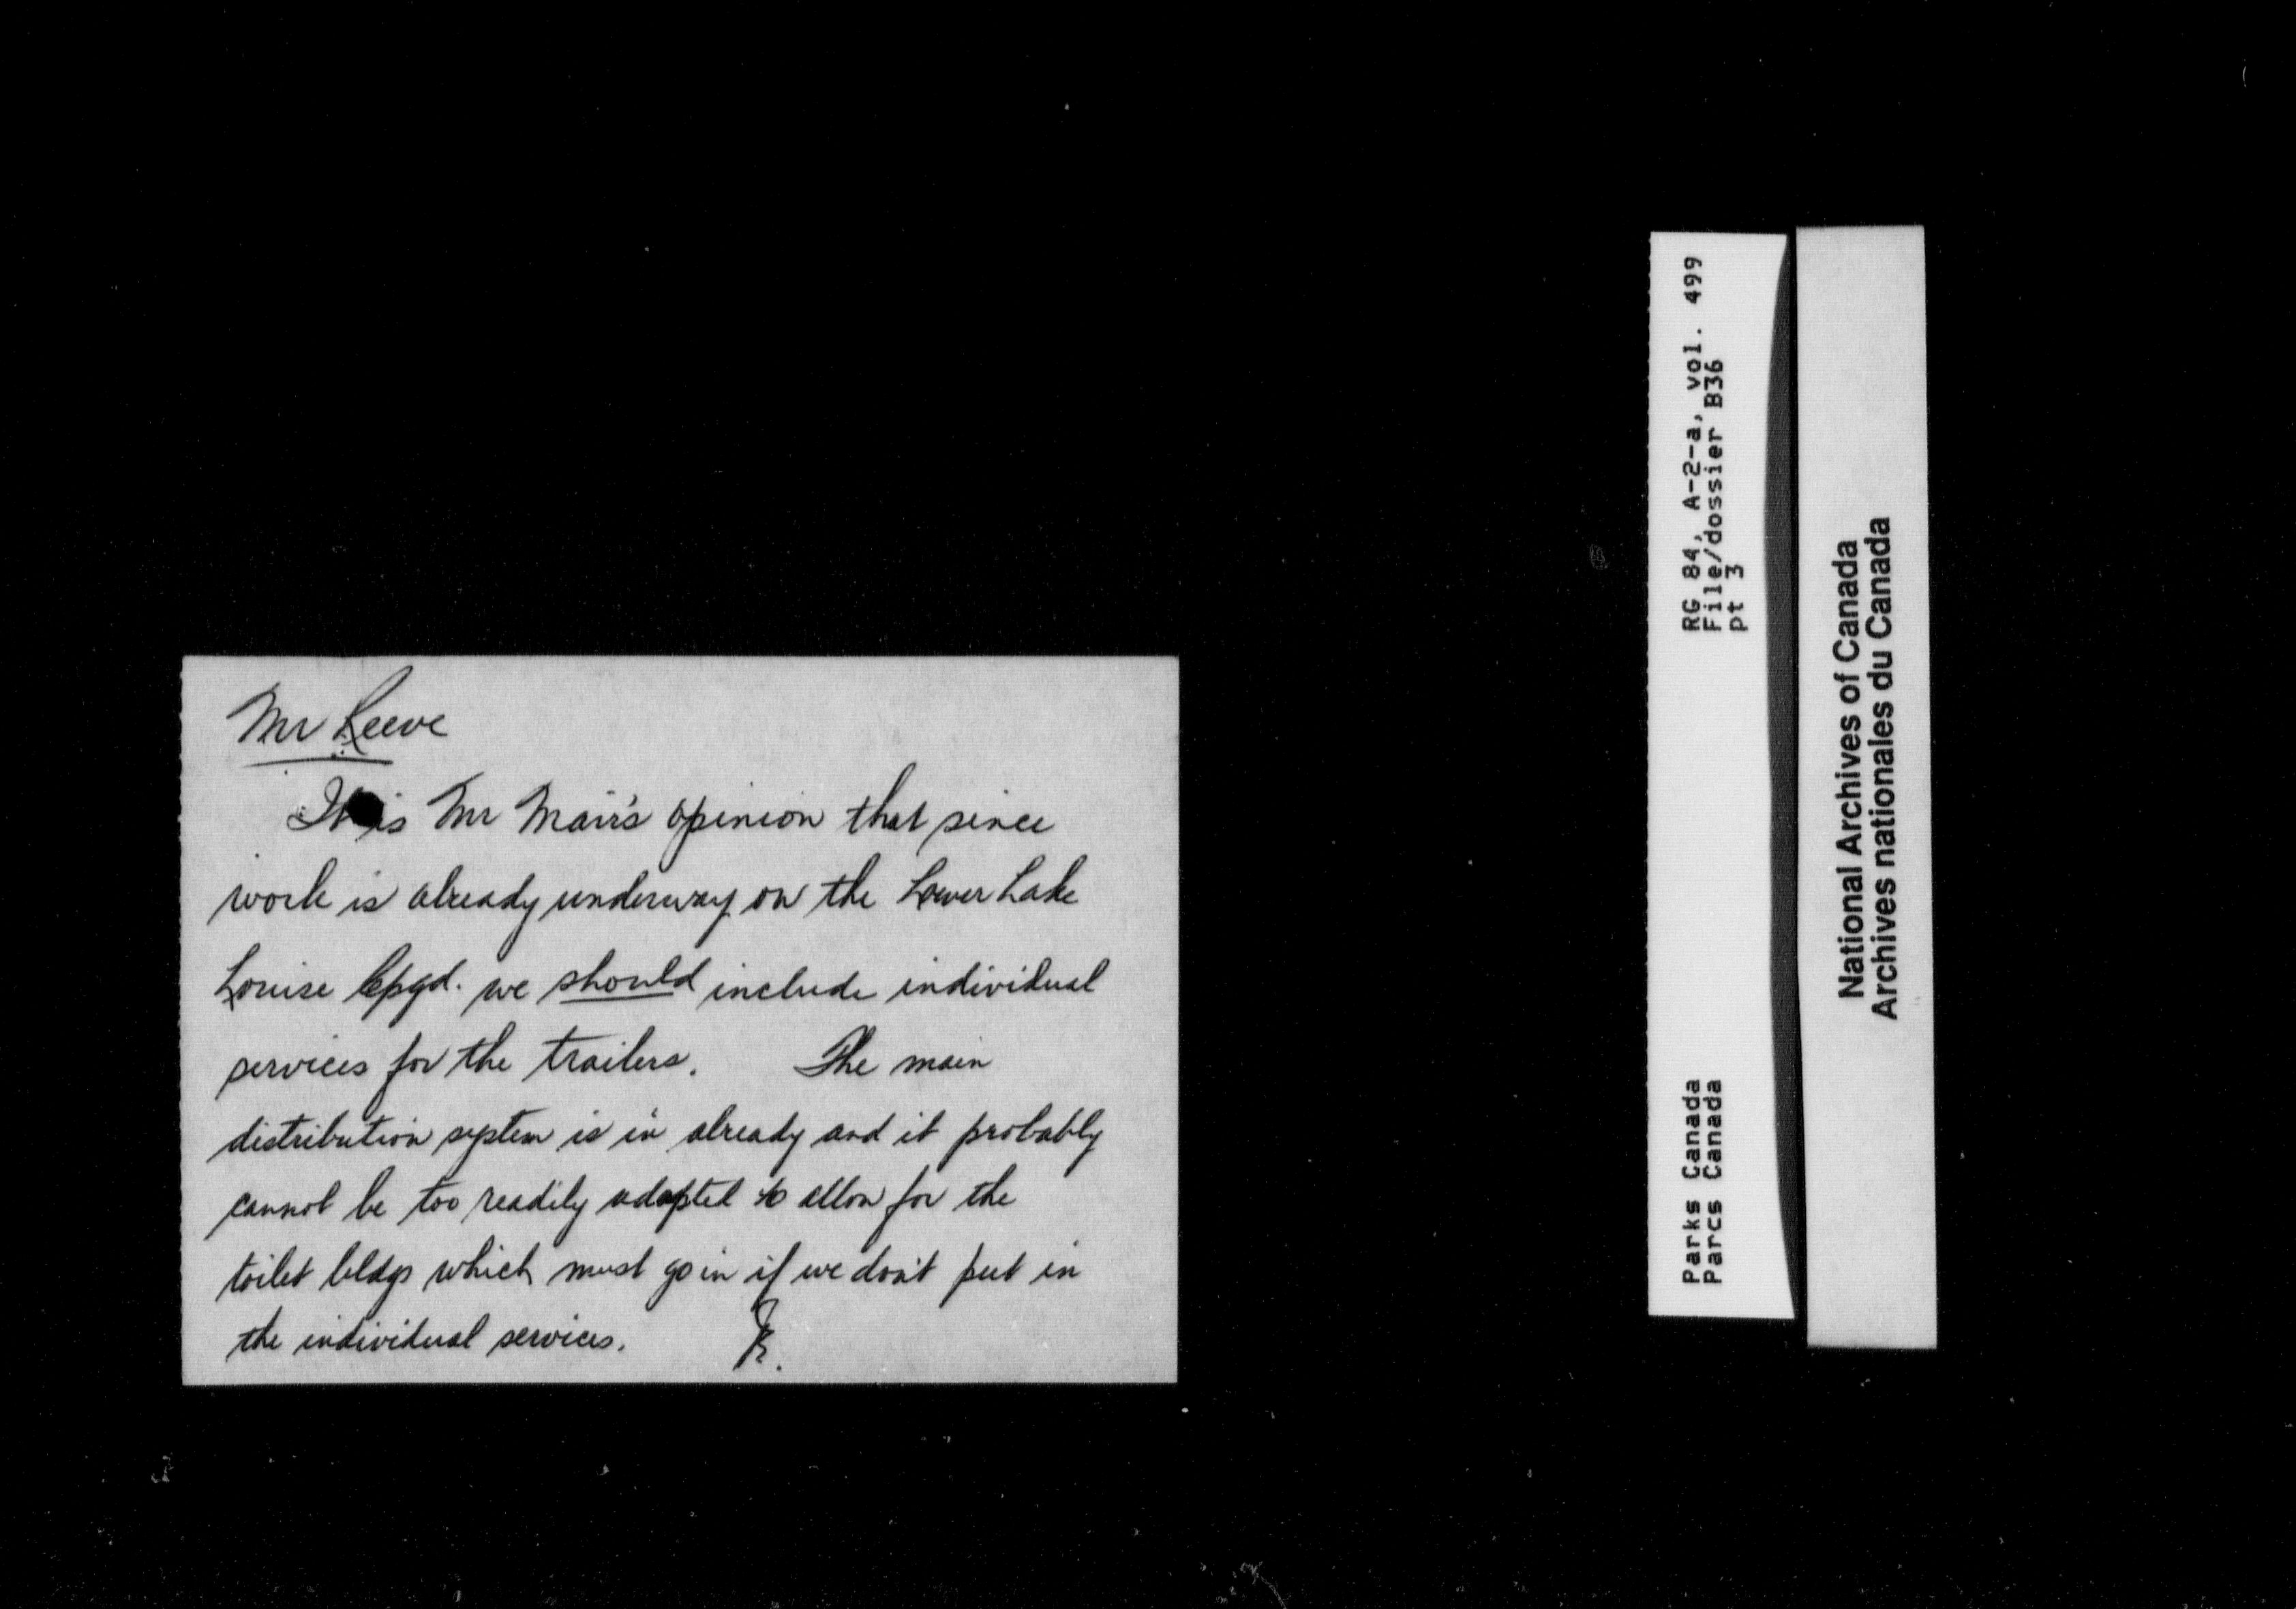 Mr Reeve
It is Mr Mair's opinion that since
work is already underway on the Lower Lake
Louise Cpgd. we should include individual
services for the trailers. The main
distribution system is in already and it probably
cannot be too readily adapted to allow for the
toilet bldgs which must go in if we don't put in
the individual services.
RG 84, A-2-a, vol. 499
File/dossier B36
pt 3
Parks Canada
Parcs Canada
National Archives of Canada
Archives nationales du Canada